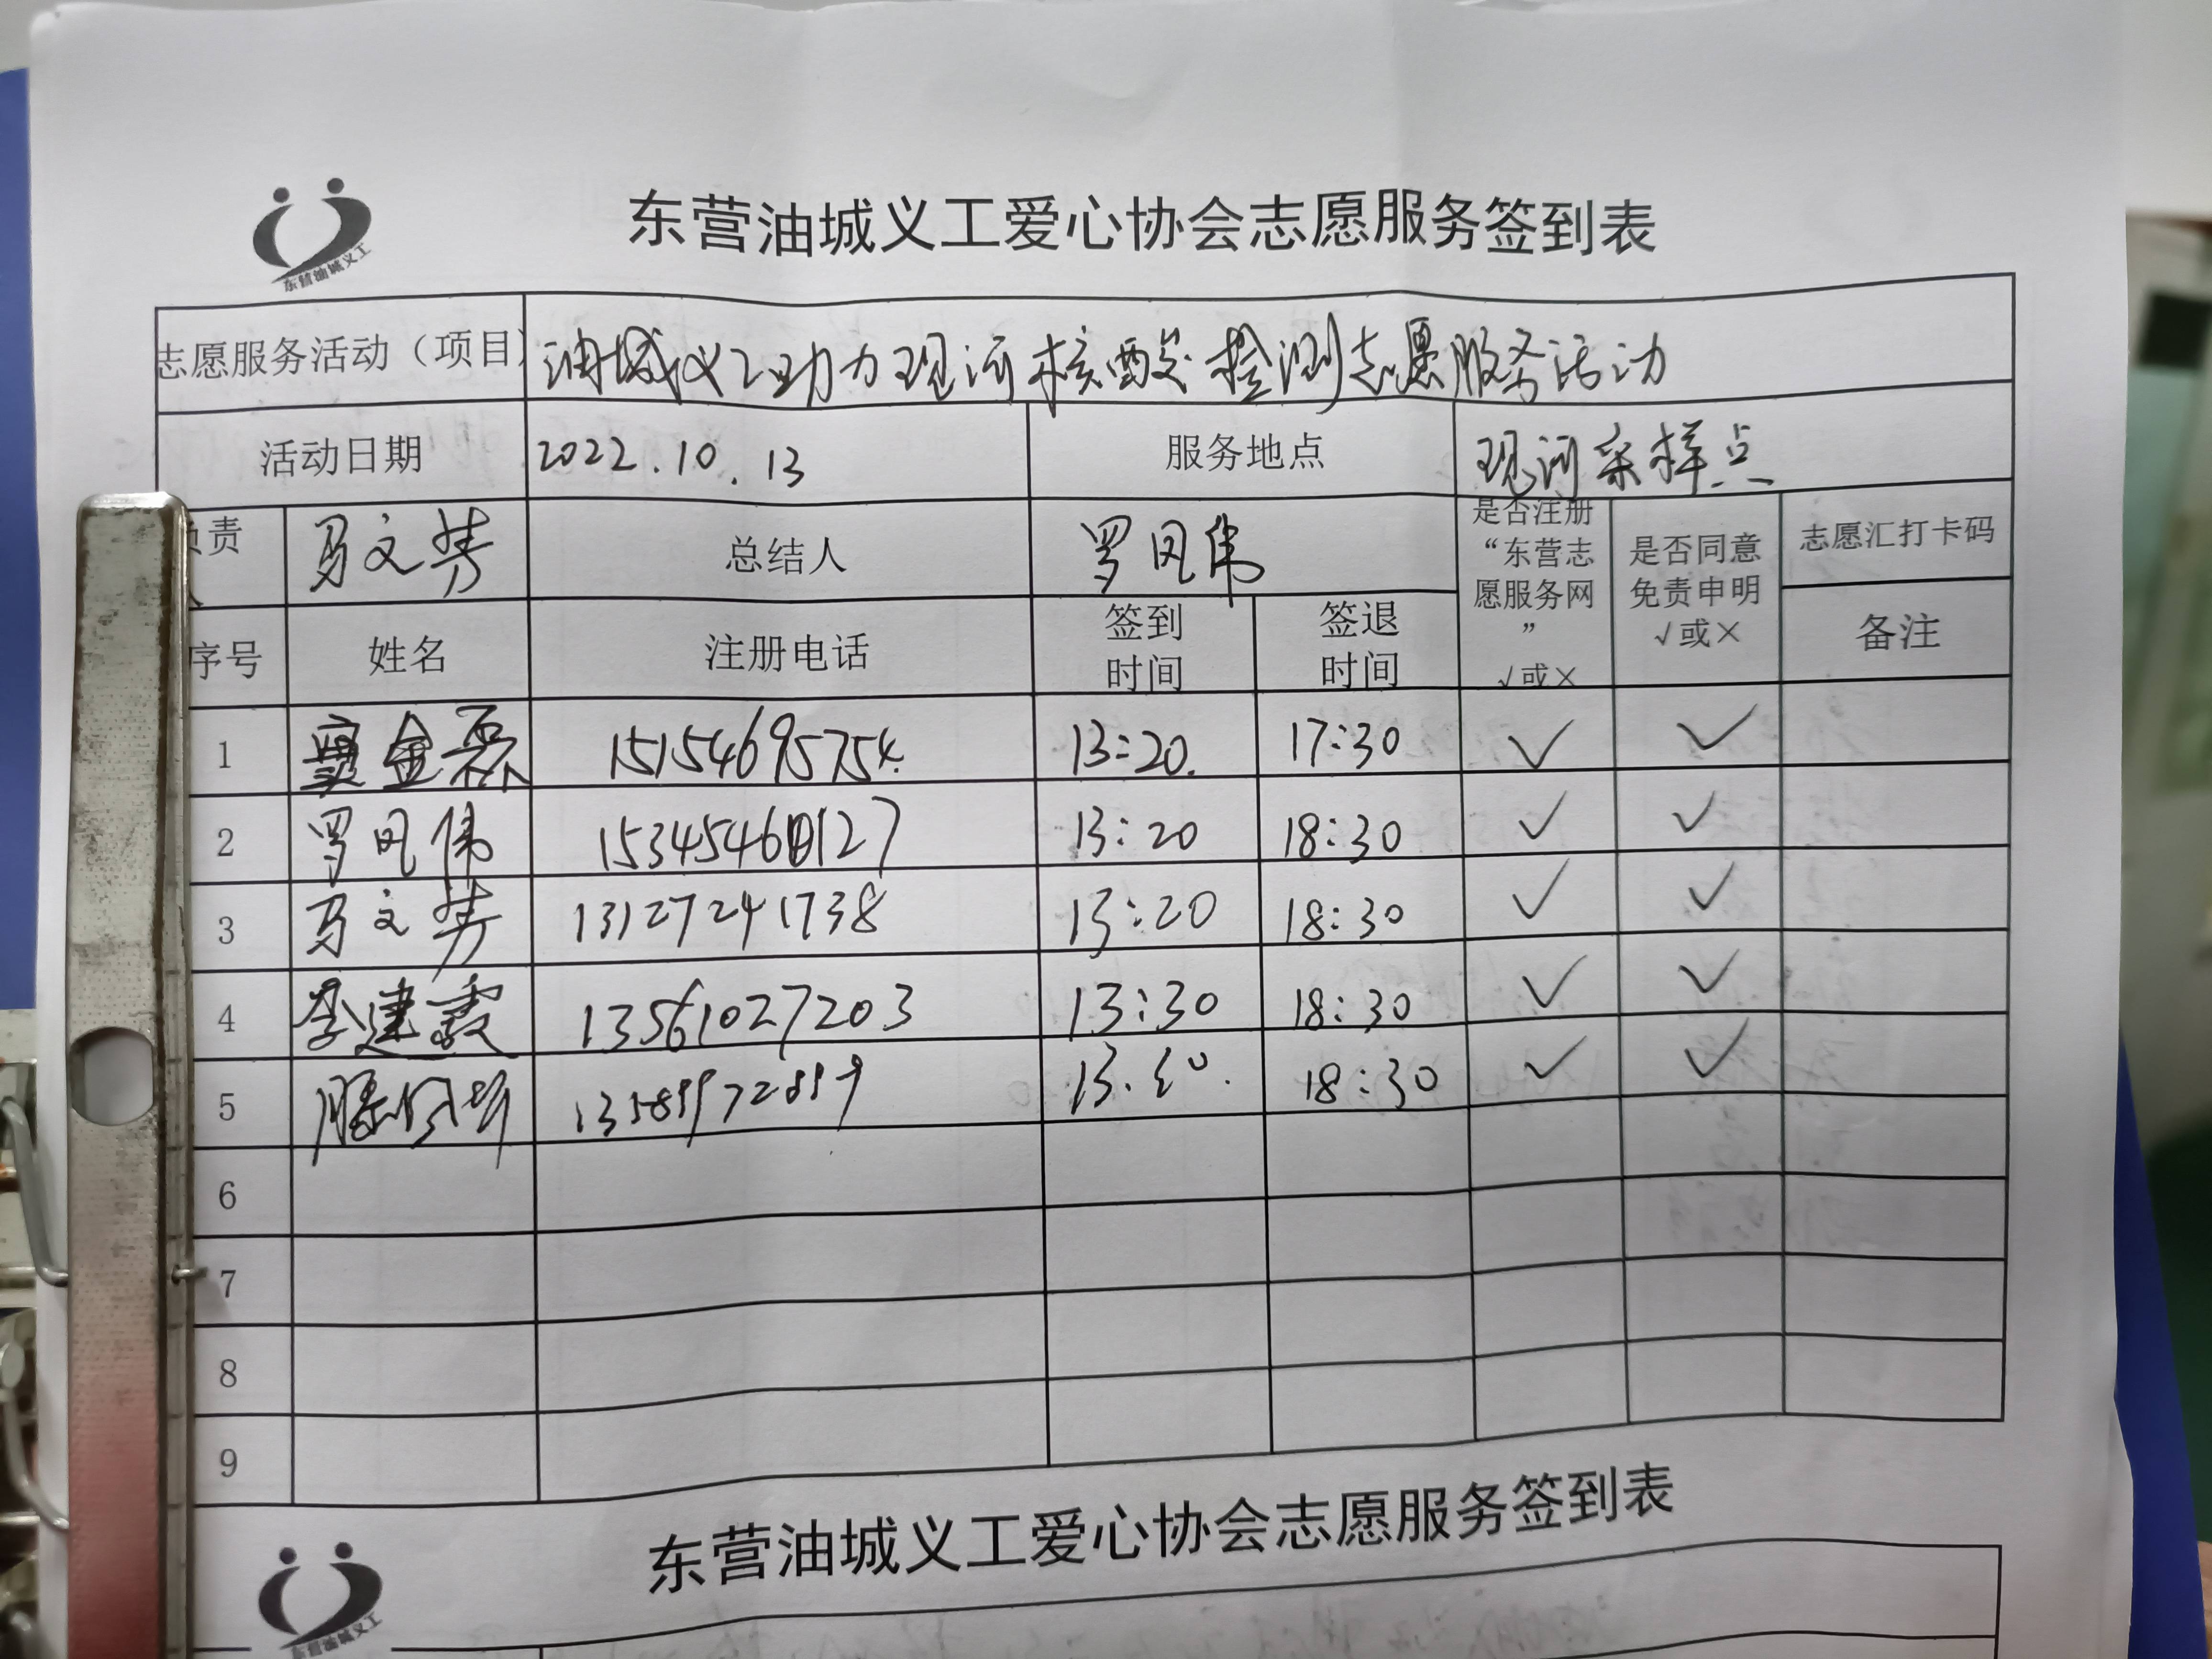 东营油城义工
东营油城义工爱心协会志愿服务签到表
志愿服务活动（项目） 油城义工助力现河核酸检测志愿服务活动
活动日期 2022.10.13 服务地点 现河采样点
负责人 马文芳 总结人 罗凤伟 是否注册“东营志愿服务网” √或× 是否同意免责申明 √或× 志愿汇打卡码
序号 姓名 注册电话 签到时间 签退时间 备注
1 窦金磊 15154695754 13:20 17:30 ✓ ✓
2 罗凤伟 15345460127 13:20 18:30 ✓ ✓
3 马文芳 13127241738 13:20 18:30 ✓ ✓
4 李建霞 13561027203 13:30 18:30 ✓ ✓
5 18:30 ✓ ✓
6
7
8
9
东营油城义工
东营油城义工爱心协会志愿服务签到表